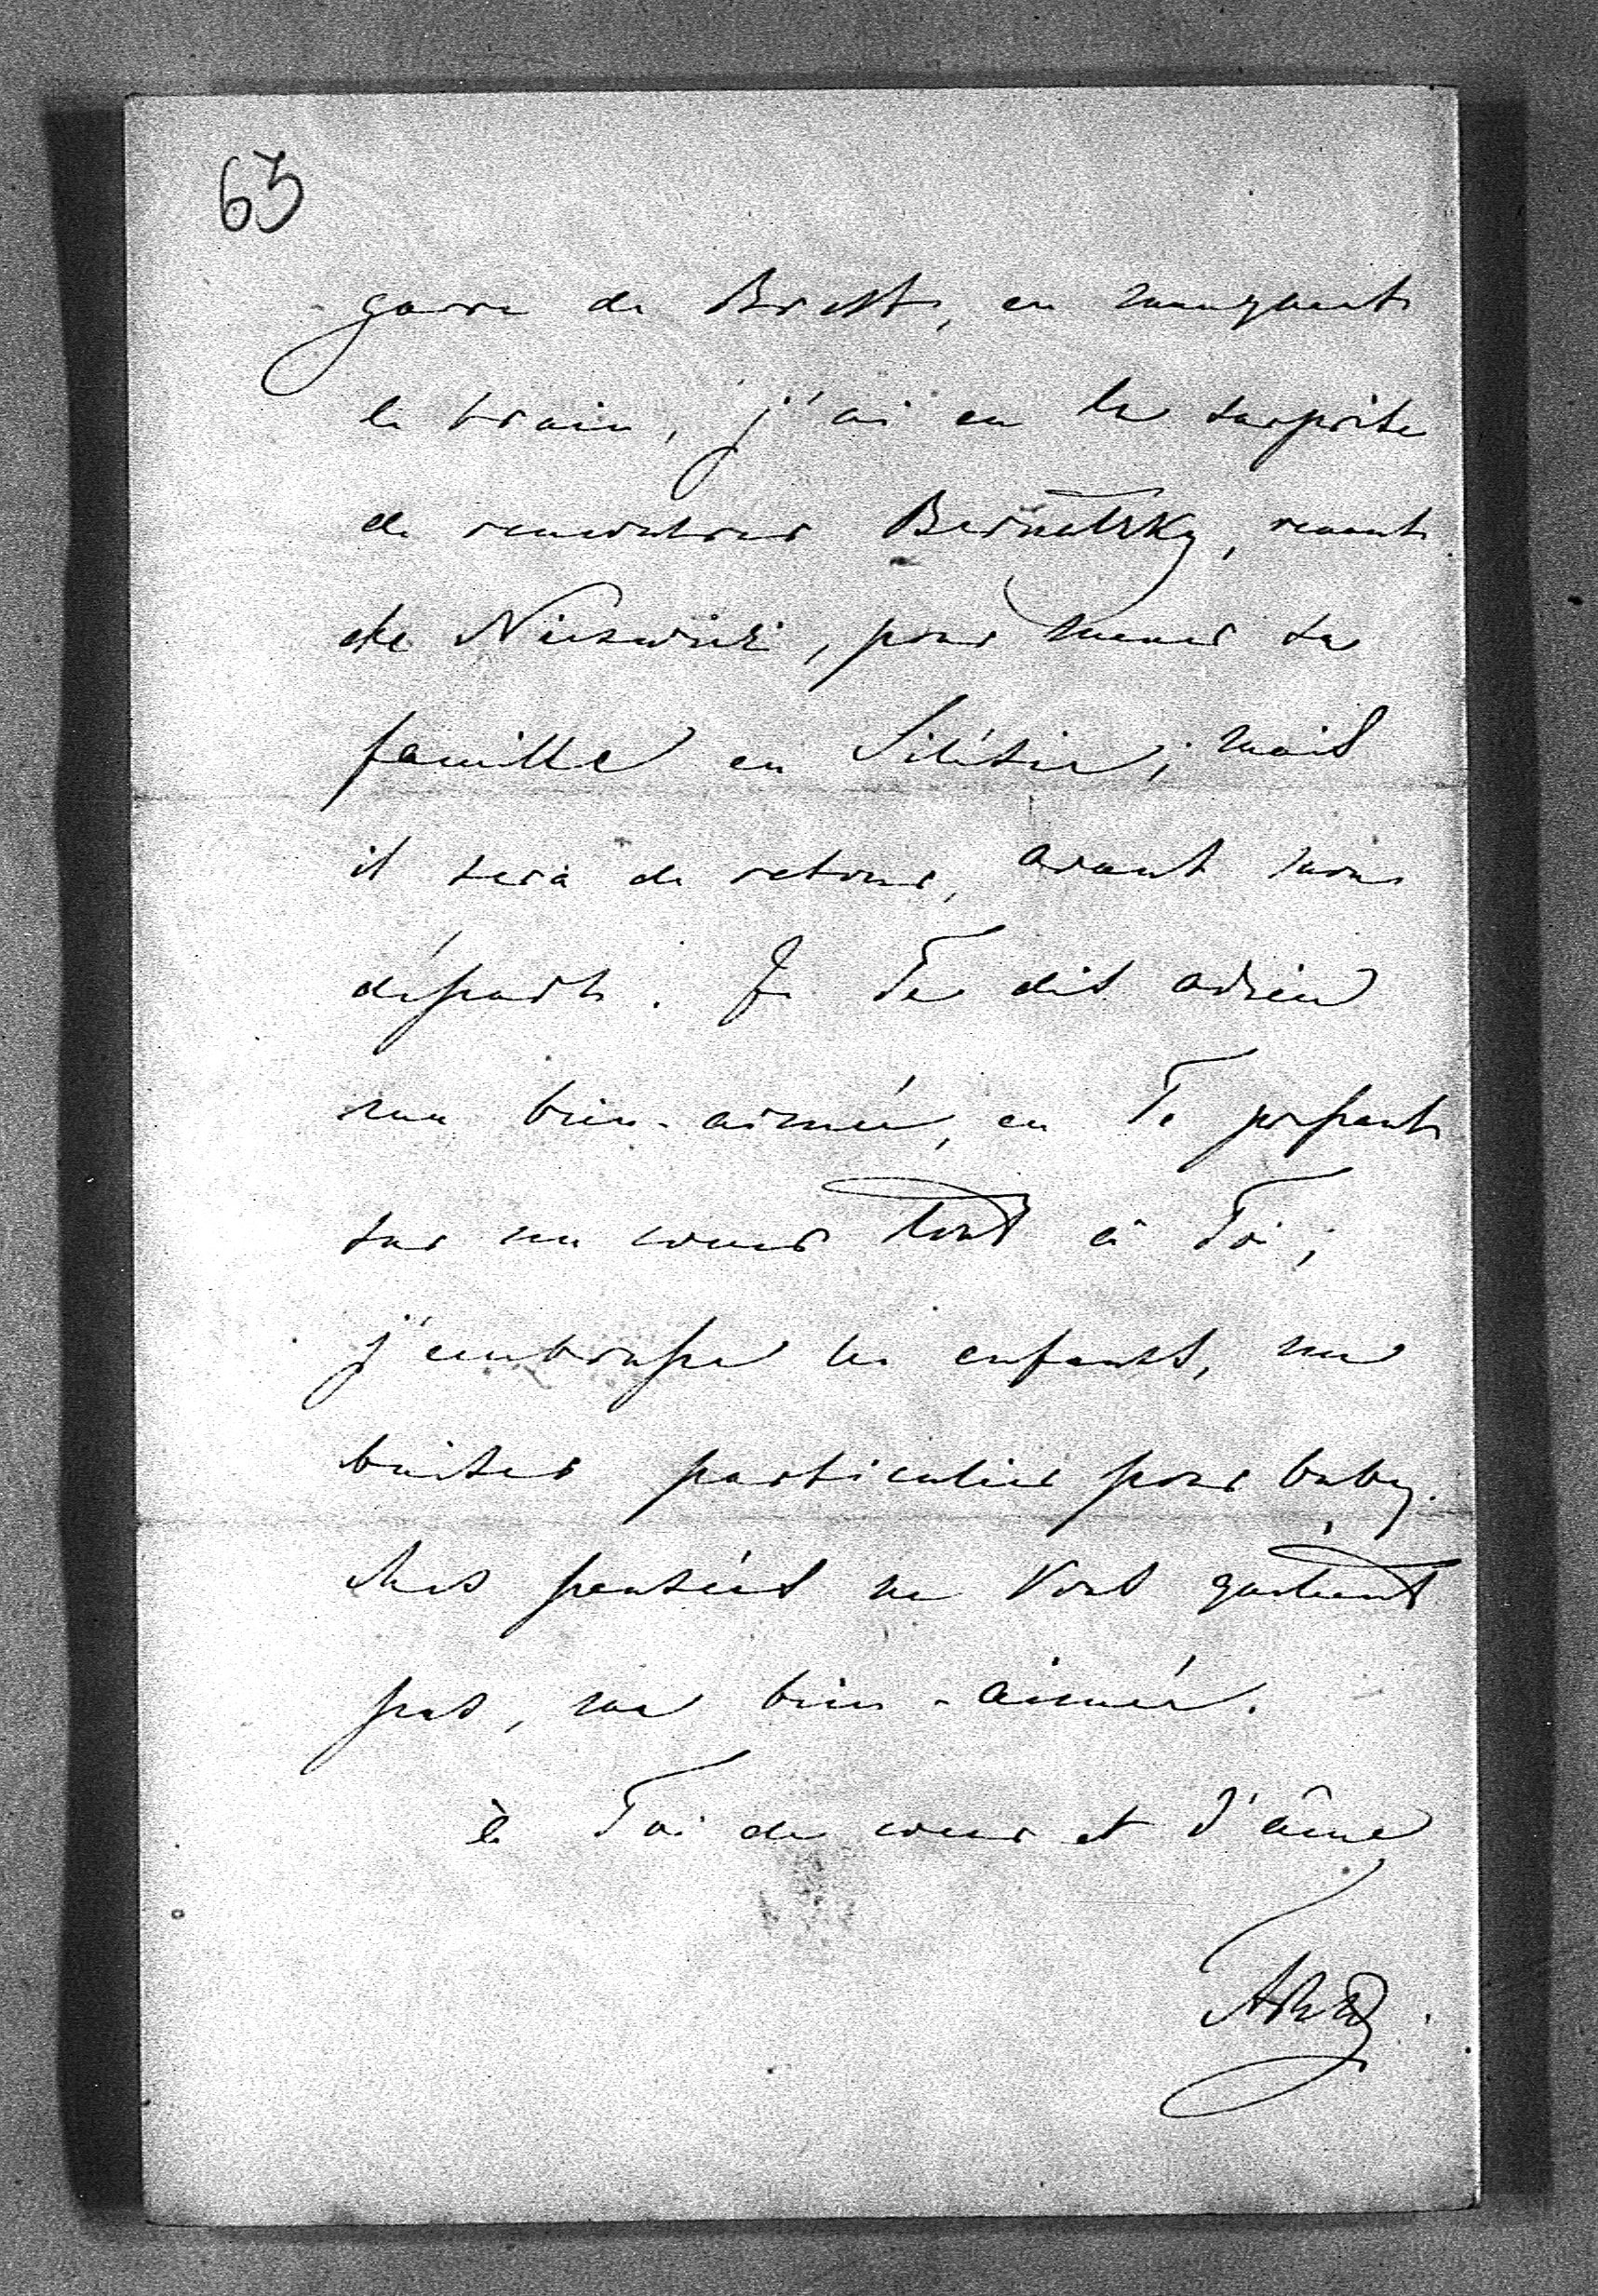 63
garre de Brest, en manquant
le train, j'ai eu la surprise
de rencontrer Bernatzky, venant
de Nieswiez, pour mener sa
famille en Silésie; mais
il sera de retour, avant mon
départ. Je Te dis adieu
ma bien-aimée, en Te pressant
sur un coeur tout à Toi;
j'embrasse les enfants, un
baiser particulier pour baby.
Mes pensées ne Vous quittent
pas, ma bien-aimée.
à Toi de coeur et d'âme